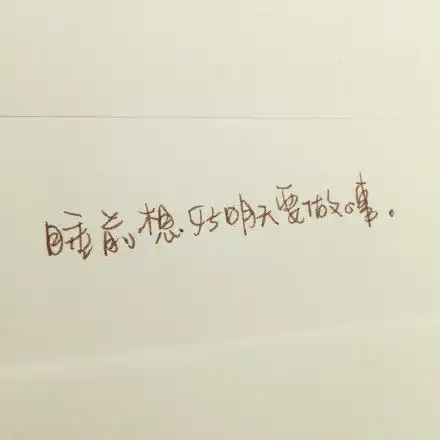 睡前想好明天要做的事.